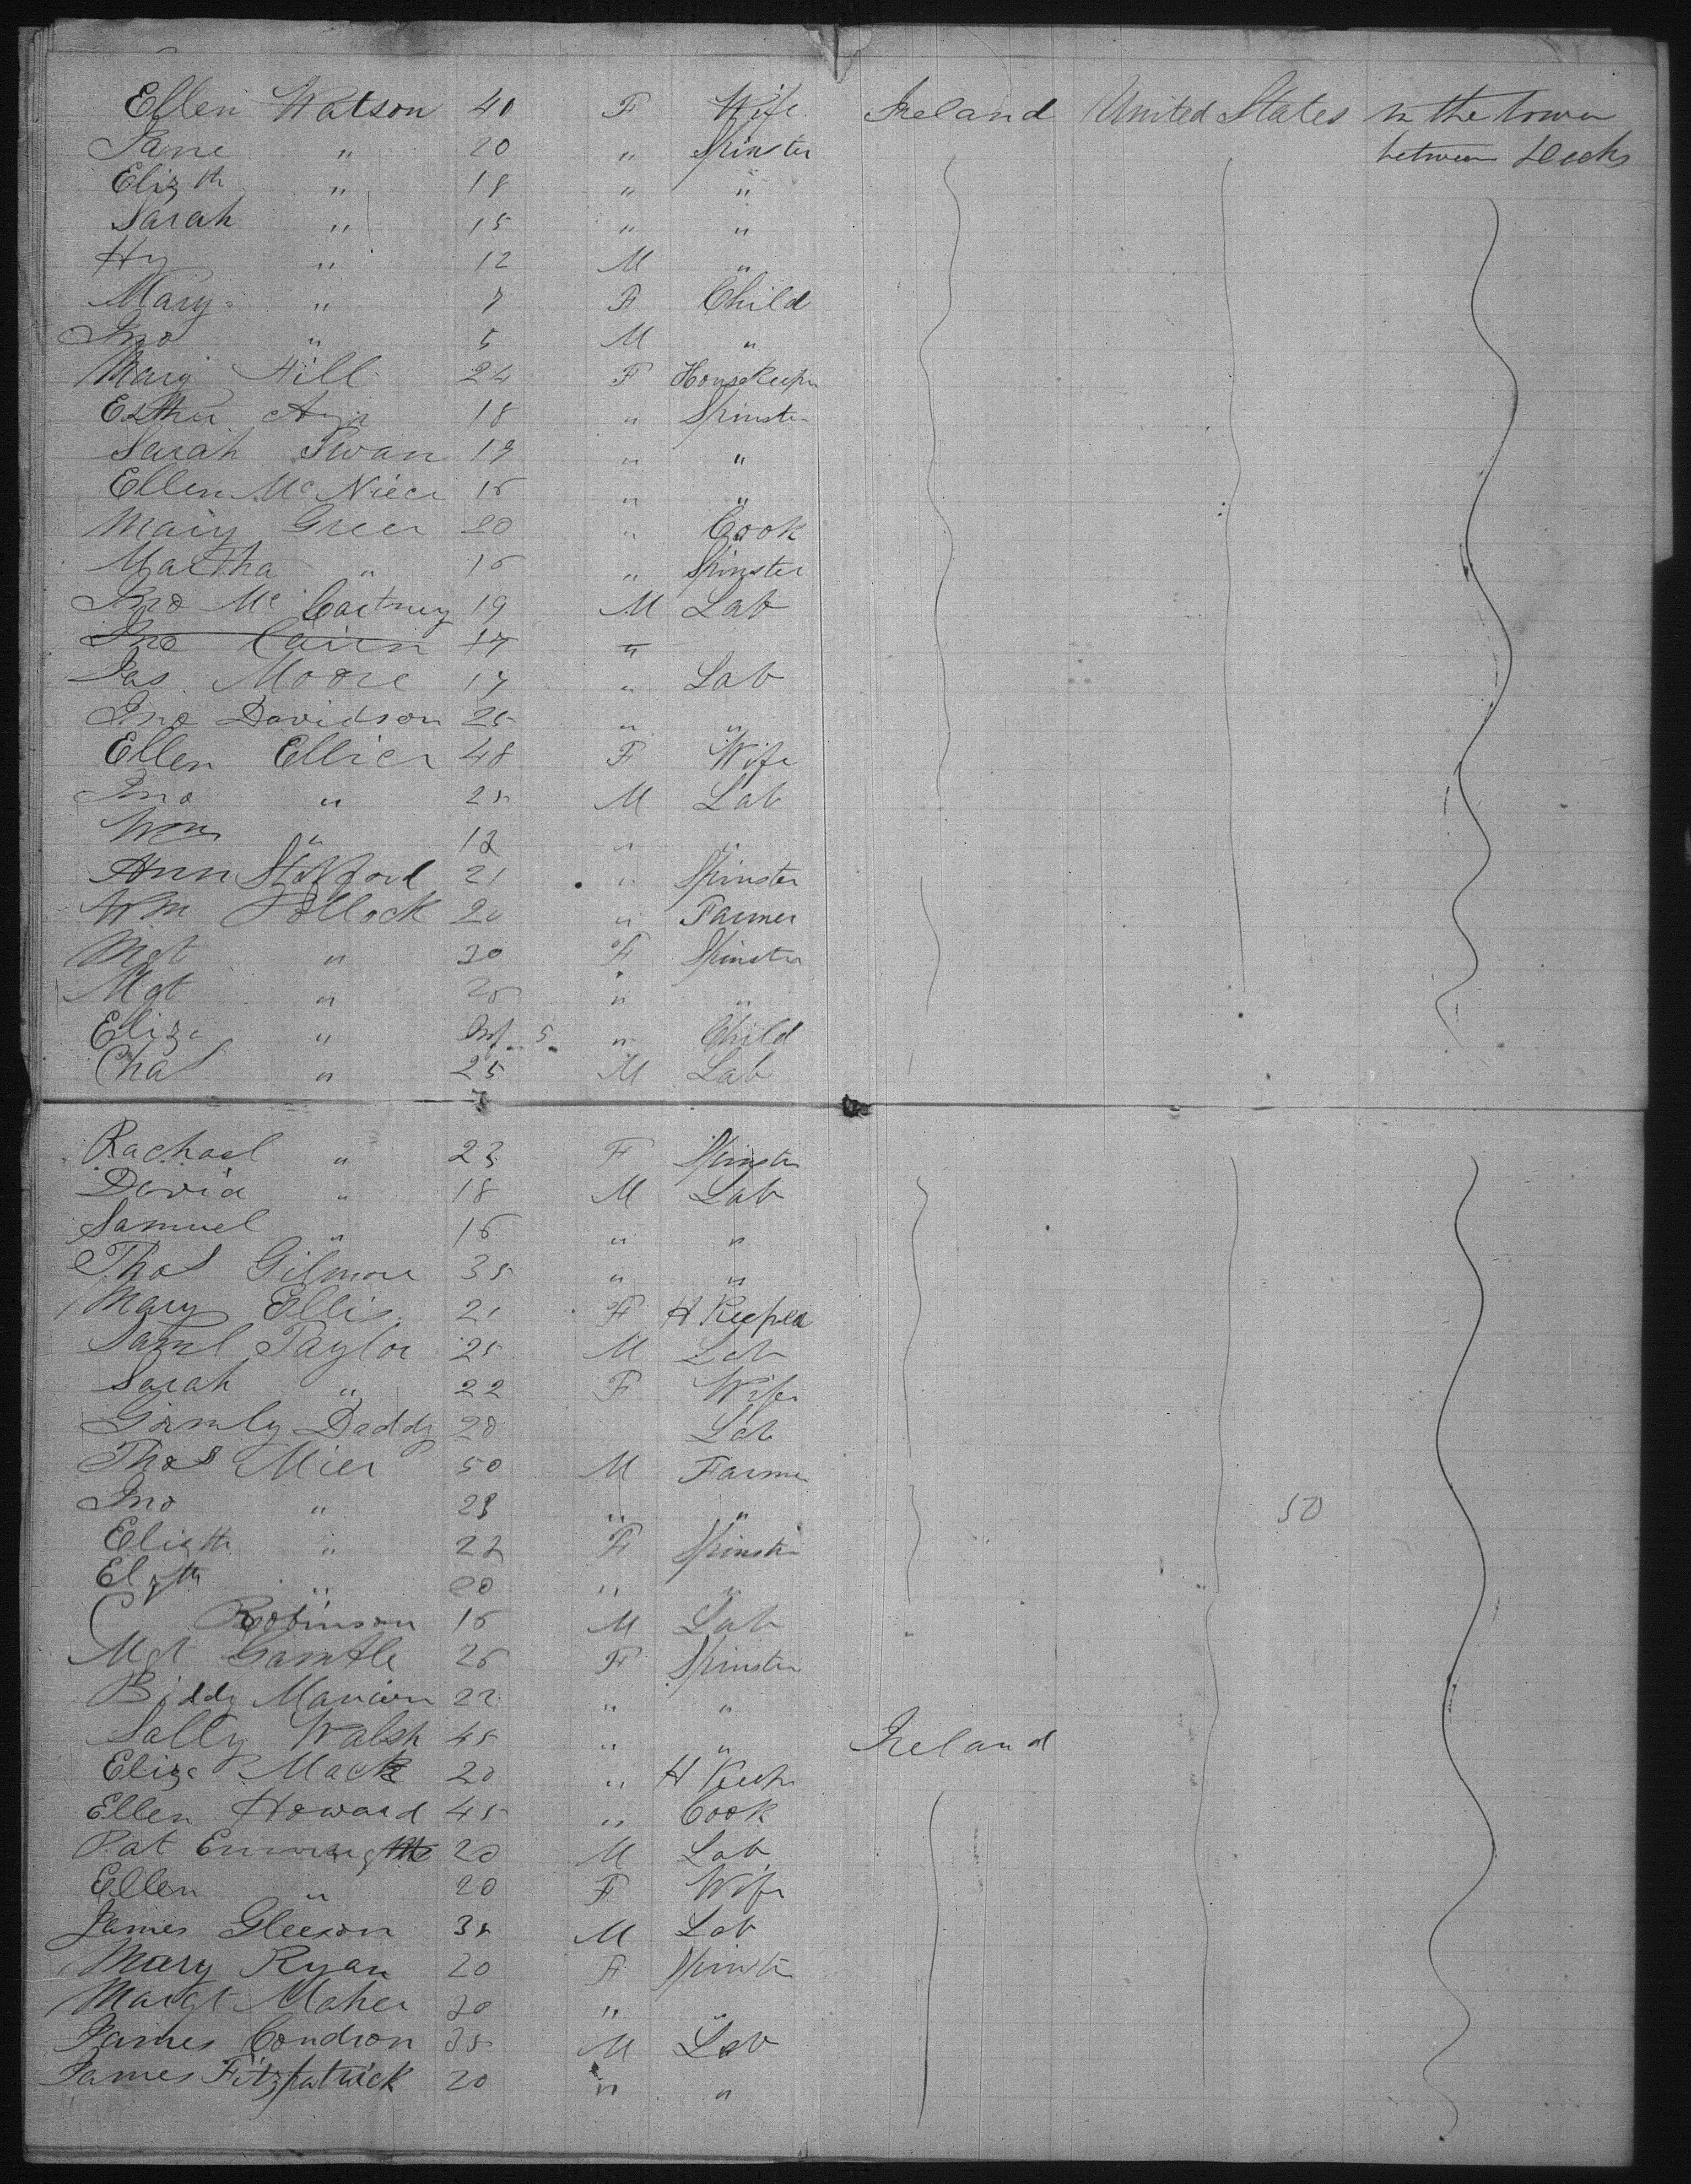 Ellen Watson 40 F Wife Ireland United States In the lower
Jane " 20 " Spinster between Decks
Elizth " 18 " "
Sarah " 15 " "
Hy " 12 M "
Mary " 7 F Child
Jno " 5 M "
Mary Hill 24 F Housekeeper
Esther 18 " Spinster
Sarah Swan 19 " "
Ellen McNiece 16 " "
Mary Greer 20 " Cook
Martha " 16 " Spinster
Jno McCartney 19 M Lab
Jno Cairn 17 "
Jas Moore 17 " Lab
Jno Davidson 25 " "
Ellen Ellier 48 F Wife
Jno " 25 M Lab
Wm " 12 " "
Ann 21 " Spinster
Wm Pollock 20 " Farmer
Mgt " 30 F Spinster
Mgt " 25 " "
Eliza " Inf 5 " Child
Chas " 25 M Lab
Rachael " 23 F Spinster
David " 18 M Lab
Samuel " 16 " "
Thos Gilmore 35 " "
Mary Ellis 21 F H Keeper
Saml Taylor 25 M Lab
Sarah " 22 F Wife
Gormly Daddy 20 Lab
Thos Mier 50 M Farmer
Jno " 23 " " 50
Elizth " 22 F Spinster
Elzth " 20 " "
C Robinson 16 M Lab "
Mgt Gamble 26 F Spinster
Biddy Mancion 22 " "
Sally Walsh 45 " " Ireland
Eliza Mack 20 " H Keepr
Ellen Howard 45 " Cook
Pat 20 M Lab
Ellen " 20 F Wife
James Gleeson 38 M Lab
Mary Ryan 20 F Spinster
Margt Maher 20 " "
James Condron 35 M Lab
James Fitzpatrick 20 " "